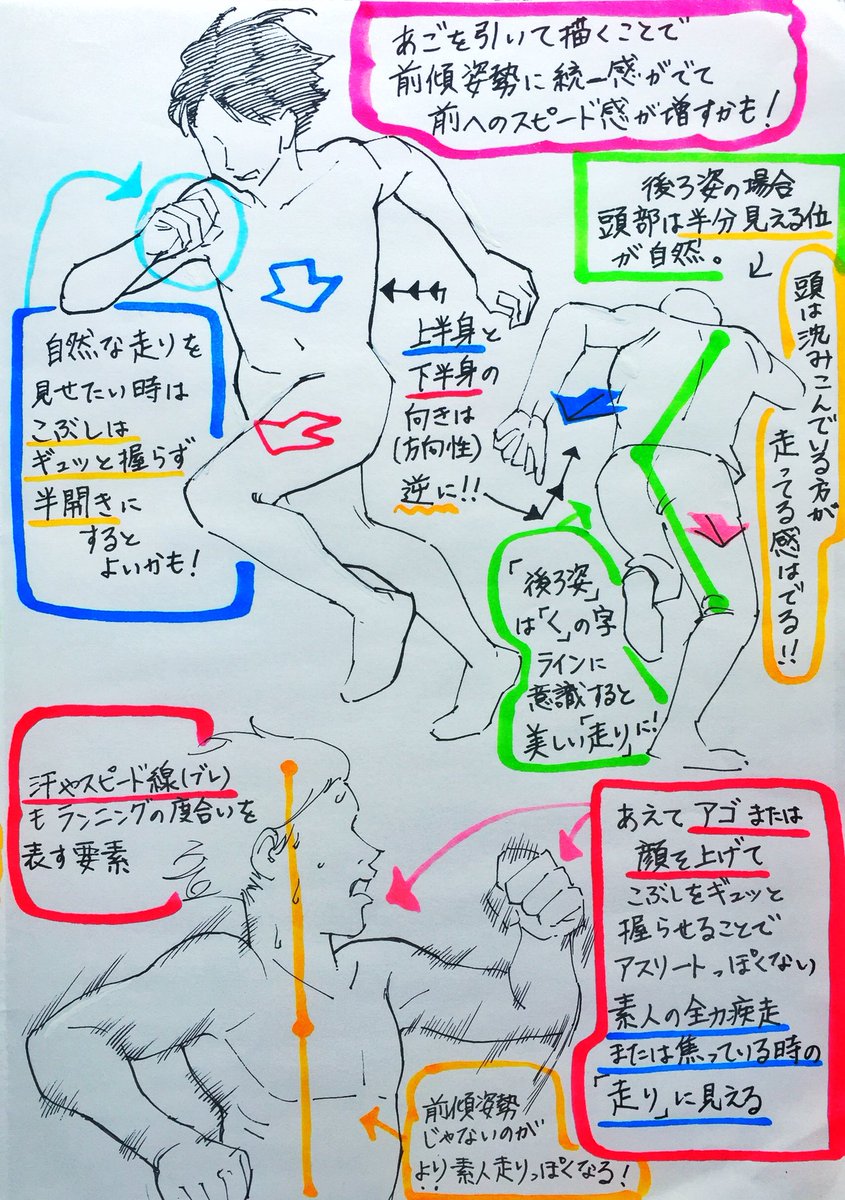 あごを引いて描くことで
前傾姿勢に統一感がでて
前へのスピード感が増すかも!
後ろ姿の場合
頭部は半分見える位
が自然。
頭は沈みこんでいる方が
走ってる感はでる!!
自然な走りを
見せたい時は
こぶしは
ギュッと握らず
半開きに
すると
よいかも!
上半身と
下半身の
向きは
(方向性)
逆に!!
「後ろ姿」
は「く」の字
ラインに
意識すると
美しい「走り」に!
汗やスピード線(ブレ)
もランニングの度合いを
表す要素
あえてアゴまたは
顔を上げて
こぶしをギュッと
握らせることで
アスリートっぽくない
素人の全力疾走
または焦っている時の
「走り」に見える
前傾姿勢
じゃないのが
より素人走りっぽくなる!